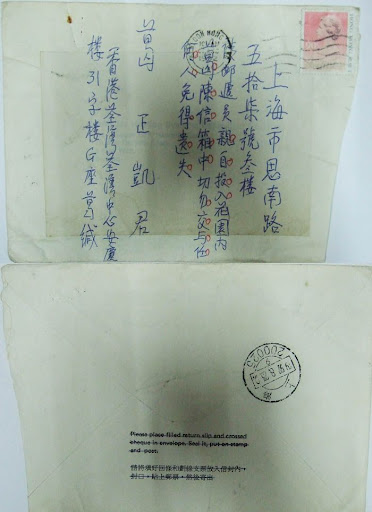 上海市思南路
五拾柒號叁樓
請郵遞員親自投入花園內
陳信箱中切勿交与任
何人免得遺失
正凱君
香港荃灣荃灣中心安慶
樓31字樓G座葛緘
200025
Please place filled return slip and crossed
cheque in envelope. Seal it, put on stamp
and post.
請將填好回條和劃線支票放入信封內，
封口，貼上郵票，然後寄出